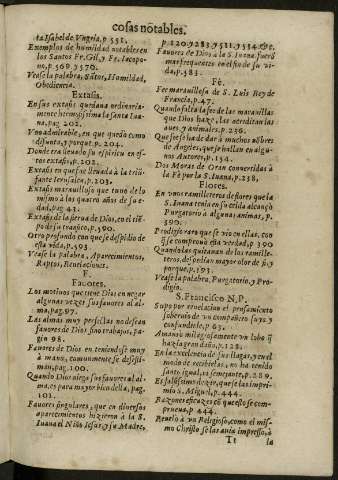 cosas nōtables.
ta Isabel de Vngria, p. 551.
Exemplos de humildad notables en
los Santos Fr. Gil, y Fr. Iacopo-
no, p. 569. y 570.
Vease la palabra, Sātos, Humildad,
Obediencia.
Extasis.
En sus extasis quedaua ordinariamente
hermosissima la santa Iuana,
pag. 202.
Vno admirable, en que quedò como
difunta, y porque p. 204.
Donde era lleuado su espiritu en estos
extasis, p. 202.
Extasis en que fue lleuada à la triũfante
Ierusalen, p. 203.
Extasis marauilloso que tuuo de lo
mismo à las quatro años de su edad,
pag. 42.
Extasis de la sierua de Dios, en el tiẽpo
de su transito, p. 590.
Otro profundo con que se despidio de
esta vida, p. 593
Vease la palabra, Aparecimientos,
Raptos, Reuelaciones.
F.
Fauores.
Los motiuos que tiene Dios en negar
algunas vezes sus fauores al alma,
pag. 97.
Las almas muy perfectas no desean
fauores de Dios sino trabajos, pagin
98.
Fauores de Dios en teniendose muy
à mano, comunmente se desestiman,
pag. 100.
Quando Dios niega sus fauores al alma,
es para mayor bien della, pag.
101.
Fauores singulares, que en diuersos
aparecimientos hizieron à la S.
Iuana el Niño Iesus, y su Madre,
p. 120. y 283. y 511. y 534. &c.
Fauores de Dios à la S. Iuana, fuerō
mas frequentes en el fin de su vida,
p. 583.
Fè.
Fee marauillosa de S. Luis Rey de
Francia, p. 47.
Quando falta la fee de las marauillas
que Dios haze, las acreditan las
aues y animales. p. 256.
Que fee se ha de dar à muchos nōbres
de Angeles, que se hallan en algunos
Autores, p. 154.
Dos Moras de Oran conuertidas à
la Fè por la S. Iuana, p. 238.
Flores.
En vnos ramilleteros de flores que la
S. Inana tenia en su celda alcançò
Purgatorio à algunas animas, p.
390.
Prodigio raro que se vio en ellas, con
q̃ se comprouò esta verdad, p. 390
Quando las quitauan de los ramilleteros,
despedian mayor olor de si, y
porque, p. 393.
Vease la palabra, Purgatorio, y Prodigio.
S. Francisco N. P.
Supo por reuelacion el pensamiento
soberuio de vn compañero suyo, y
confundiole, p. 63.
Amansò milagrosamente vn lobo q̃
hazia gran daño, p. 128.
En la excelencia de sus llagas, y en el
modo de recibirlas, no ha tenido
santo igual, ni semejante, p. 289.
Es falsissimo dezir, que se las imprimio
S. Miguel, p. 444.
Razones eficazes cō que esto se comprueua,
p. 444.
Reuelò à vn Religioso, como el mismo
Christo se las auia impresso, à
Tt
la